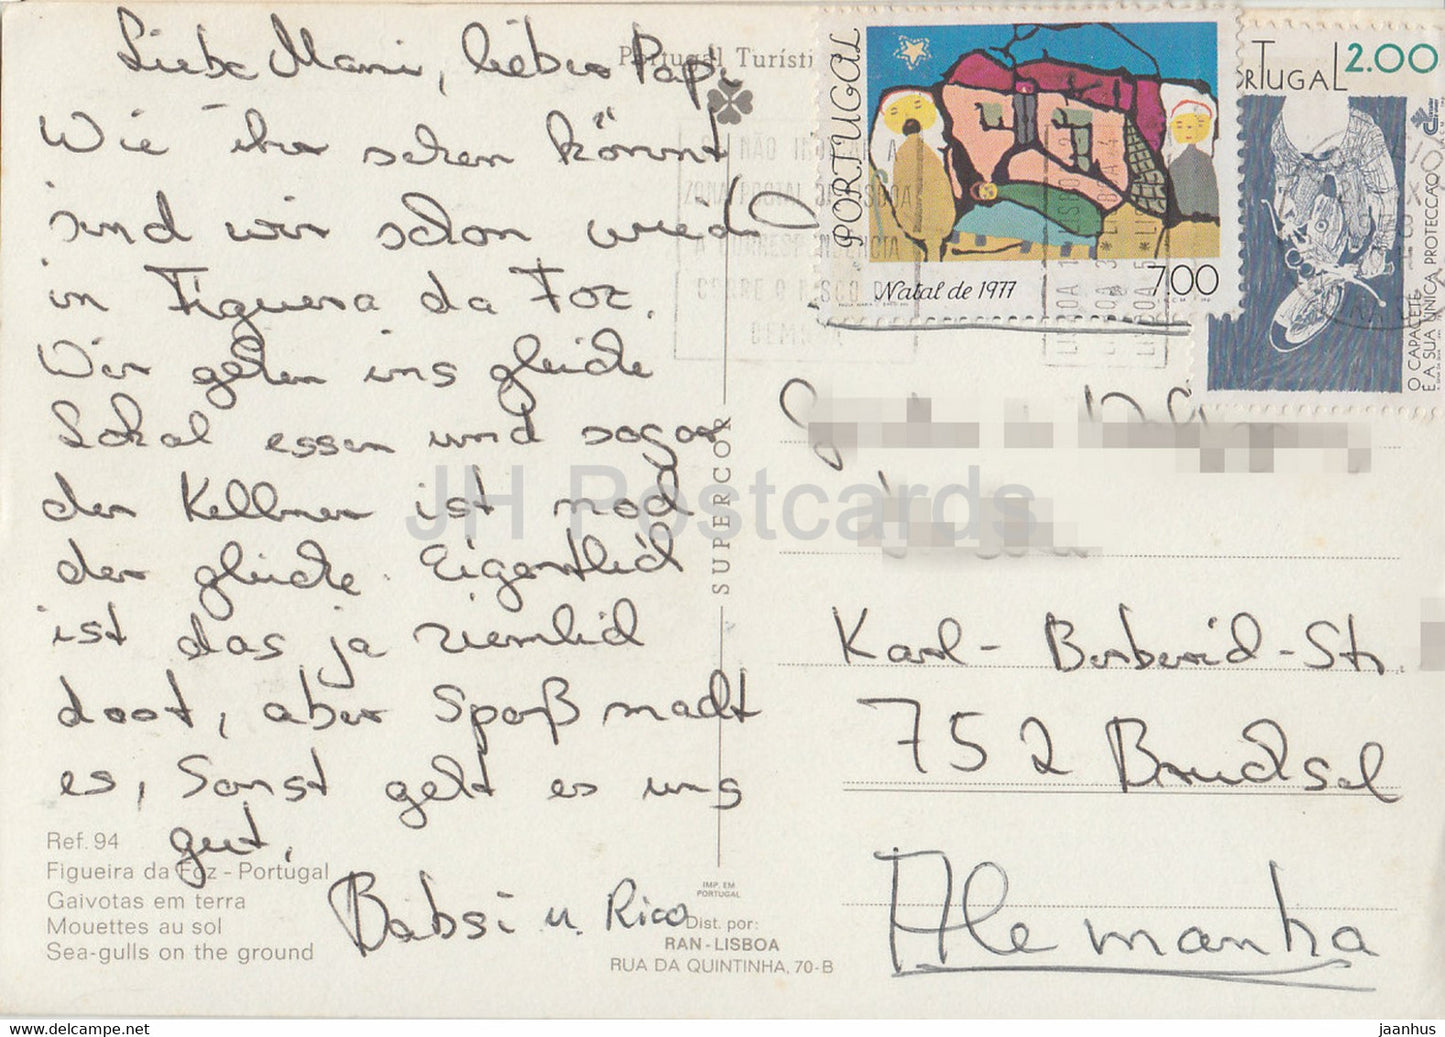 Liebe Mami, lieber Papi
Wie ihr sehen könnt
sind wir schon wieder
in Figuera da Foz.
Wir gehen ins gleiche
Lokal essen und sogar
der Kellner ist noch
der gleiche. Eigentlich
ist das ja ziemlich
doof, aber Spaß macht
es, Sonst geht es uns
gut.
Babsi u. Rico
Portugal Turísti
SUPERCOR
PORTUGAL
Natal de 1977
7.00
PORTUGAL 2.00
O CAPACETE
É A SUA ÚNICA PROTECÇÃO
Karl-Berberich-Str.
752 Bruchsal
Alemanha
Ref. 94
Figueira da Foz - Portugal
Gaivotas em terra
Mouettes au sol
Sea-gulls on the ground
IMP. EM
PORTUGAL
Dist. por:
RAN-LISBOA
RUA DA QUINTINHA, 70-B
JH Postcards
hippostcard.com
jaanhus